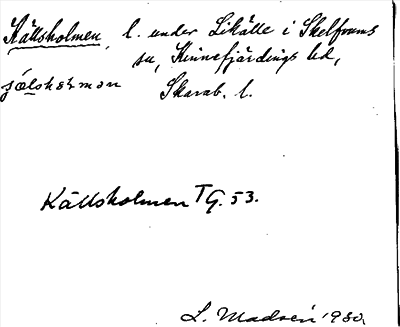 Kållsholmen, l. under Likälle i Skelfvums
sn, Kinnefjärdings hd,
Skarab. l.
Källsholmen TG. 53.
L. Madsén 1930.